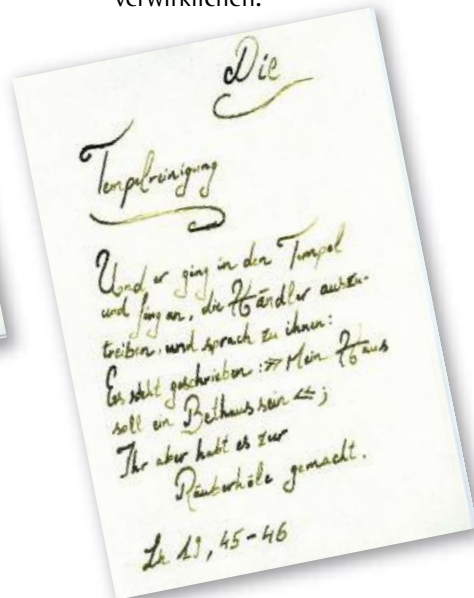 verwirklichen.
Die
Tempelreinigung
Und er ging in den Tempel
und fing an, die Händler auszu-
treiben, und sprach zu ihnen:
Es steht geschrieben: »Mein Haus
soll ein Bethaus sein«;
Ihr aber habt es zur
Räuberhöle gemacht.
Lk 19, 45-46